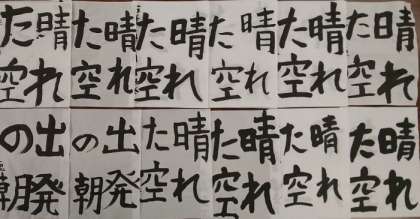 晴れ
た空
晴れ
た空
晴れ
た空
晴れ
た空
晴れ
た空
晴れ
た空
晴れ
た空
晴れ
た空
晴れ
た空
晴れ
た空
出発
の朝
出発
の朝